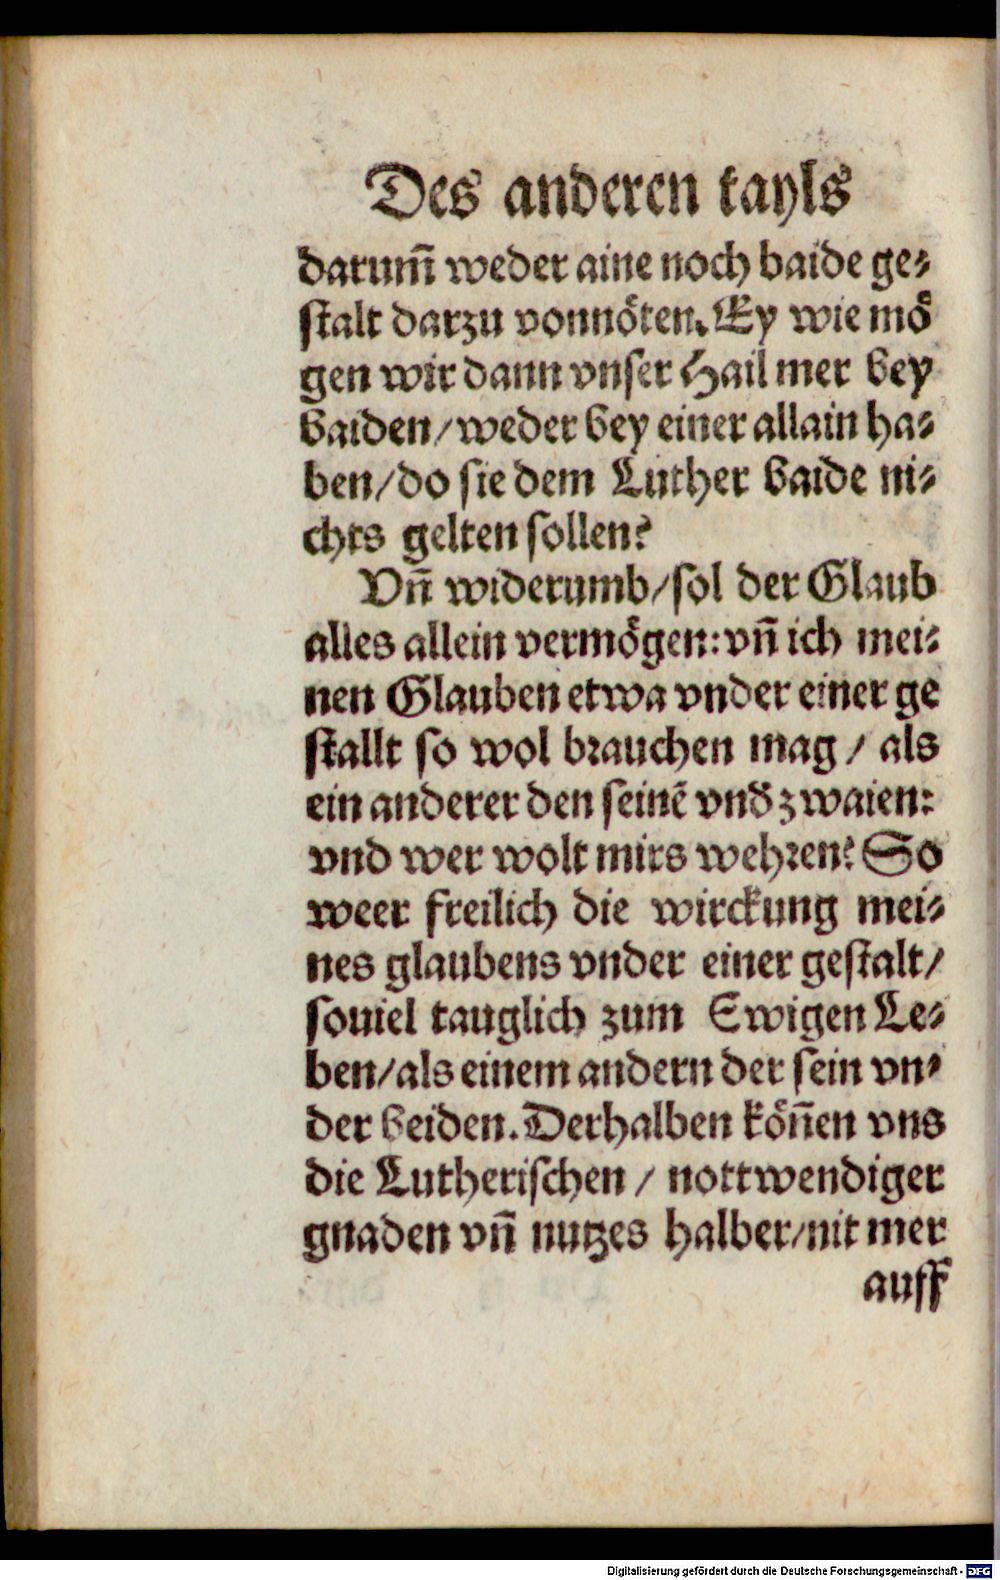 Des anderen tayls
darum̃ weder aine noch baide ge⸗
ſtalt darzu vonnöten. Ey wie mö
gen wir dann vnſer Hail mer bey
baiden/weder bey einer allain ha⸗
ben/do ſie dem Luther baide ni⸗
chts gelten ſollen?
Vñ widerumb/ſol der Glaub
alles allein vermögen: vñ ich mei⸗
nen Glauben etwa vnder einer ge
ſtallt ſo wol brauchen mag / als
ein anderer den ſeinẽ vnd̕ zwaien:
vnd wer wolt mirs wehren? So
weer freilich die wirckung mei⸗
nes glaubens vnder einer geſtalt/
ſouiel tauglich zum Ewigen Le⸗
ben/als einem andern der ſein vn⸗
der beiden. Derhalben köñen vns
die Lutheriſchen / nottwendiger
gnaden vñ nutzes halber/nit mer
auff
Digitalisierung gefördert durch die Deutsche Forschungsgemeinschaft - DFG